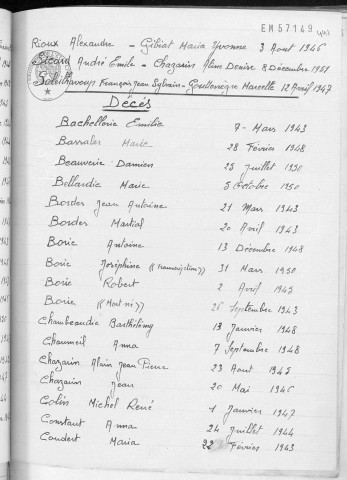 EM57149
Rioux Alexandre - Gibiat Maria Yvonne 3 Aout 1946
Sicard André Emile - Chazarin Aline Denise 8 Décembre 1951
François Jean Sylvain - Marcelle 12 Avril 1947
Décès
Bachellerie Emilie 7 Mars 1943
Barrales Marie 28 Février 1948
Beauverie Damien 25 Juillet 1950
Bellardie Marie 5 Octobre 1950
Bordes Jean Antoine 21 Mars 1943
Bordes Martial 20 Avril 1943
Borie Antoine 13 Décembre 1948
Borie Joséphine (( )) 31 Mars 1950
Borie Robert 2 Avril 1945
Borie ((Mort né)) 26 Septembre 1943
Chambeaudie Barthélémy 13 Janvier 1948
Chaumeil Anna 7 Septembre 1948
Chazarin Alain Jean Pierre 23 Aout 1945
Chazarin Jean 20 Mai 1946
Colin Michel René 1 Janvier 1947
Constant Anna 24 Juillet 1944
Coudert Maria 22 Février 1943